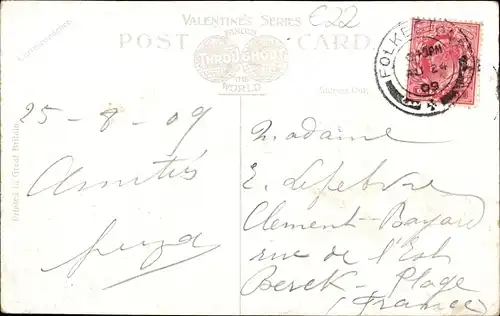 VALENTINE'S SERIES
£22
FAMOUS
POST CARD.
THROUGHOUT
THE
WORLD
Correspondence.
Address Only.
Printed in Great Britain
FOLKESTONE
AU 24
09
25-8-09
Amitiés
Madame
E. Lefebvre
Clement-Bayard
rue de l'Est
Berck-Plage
(France)